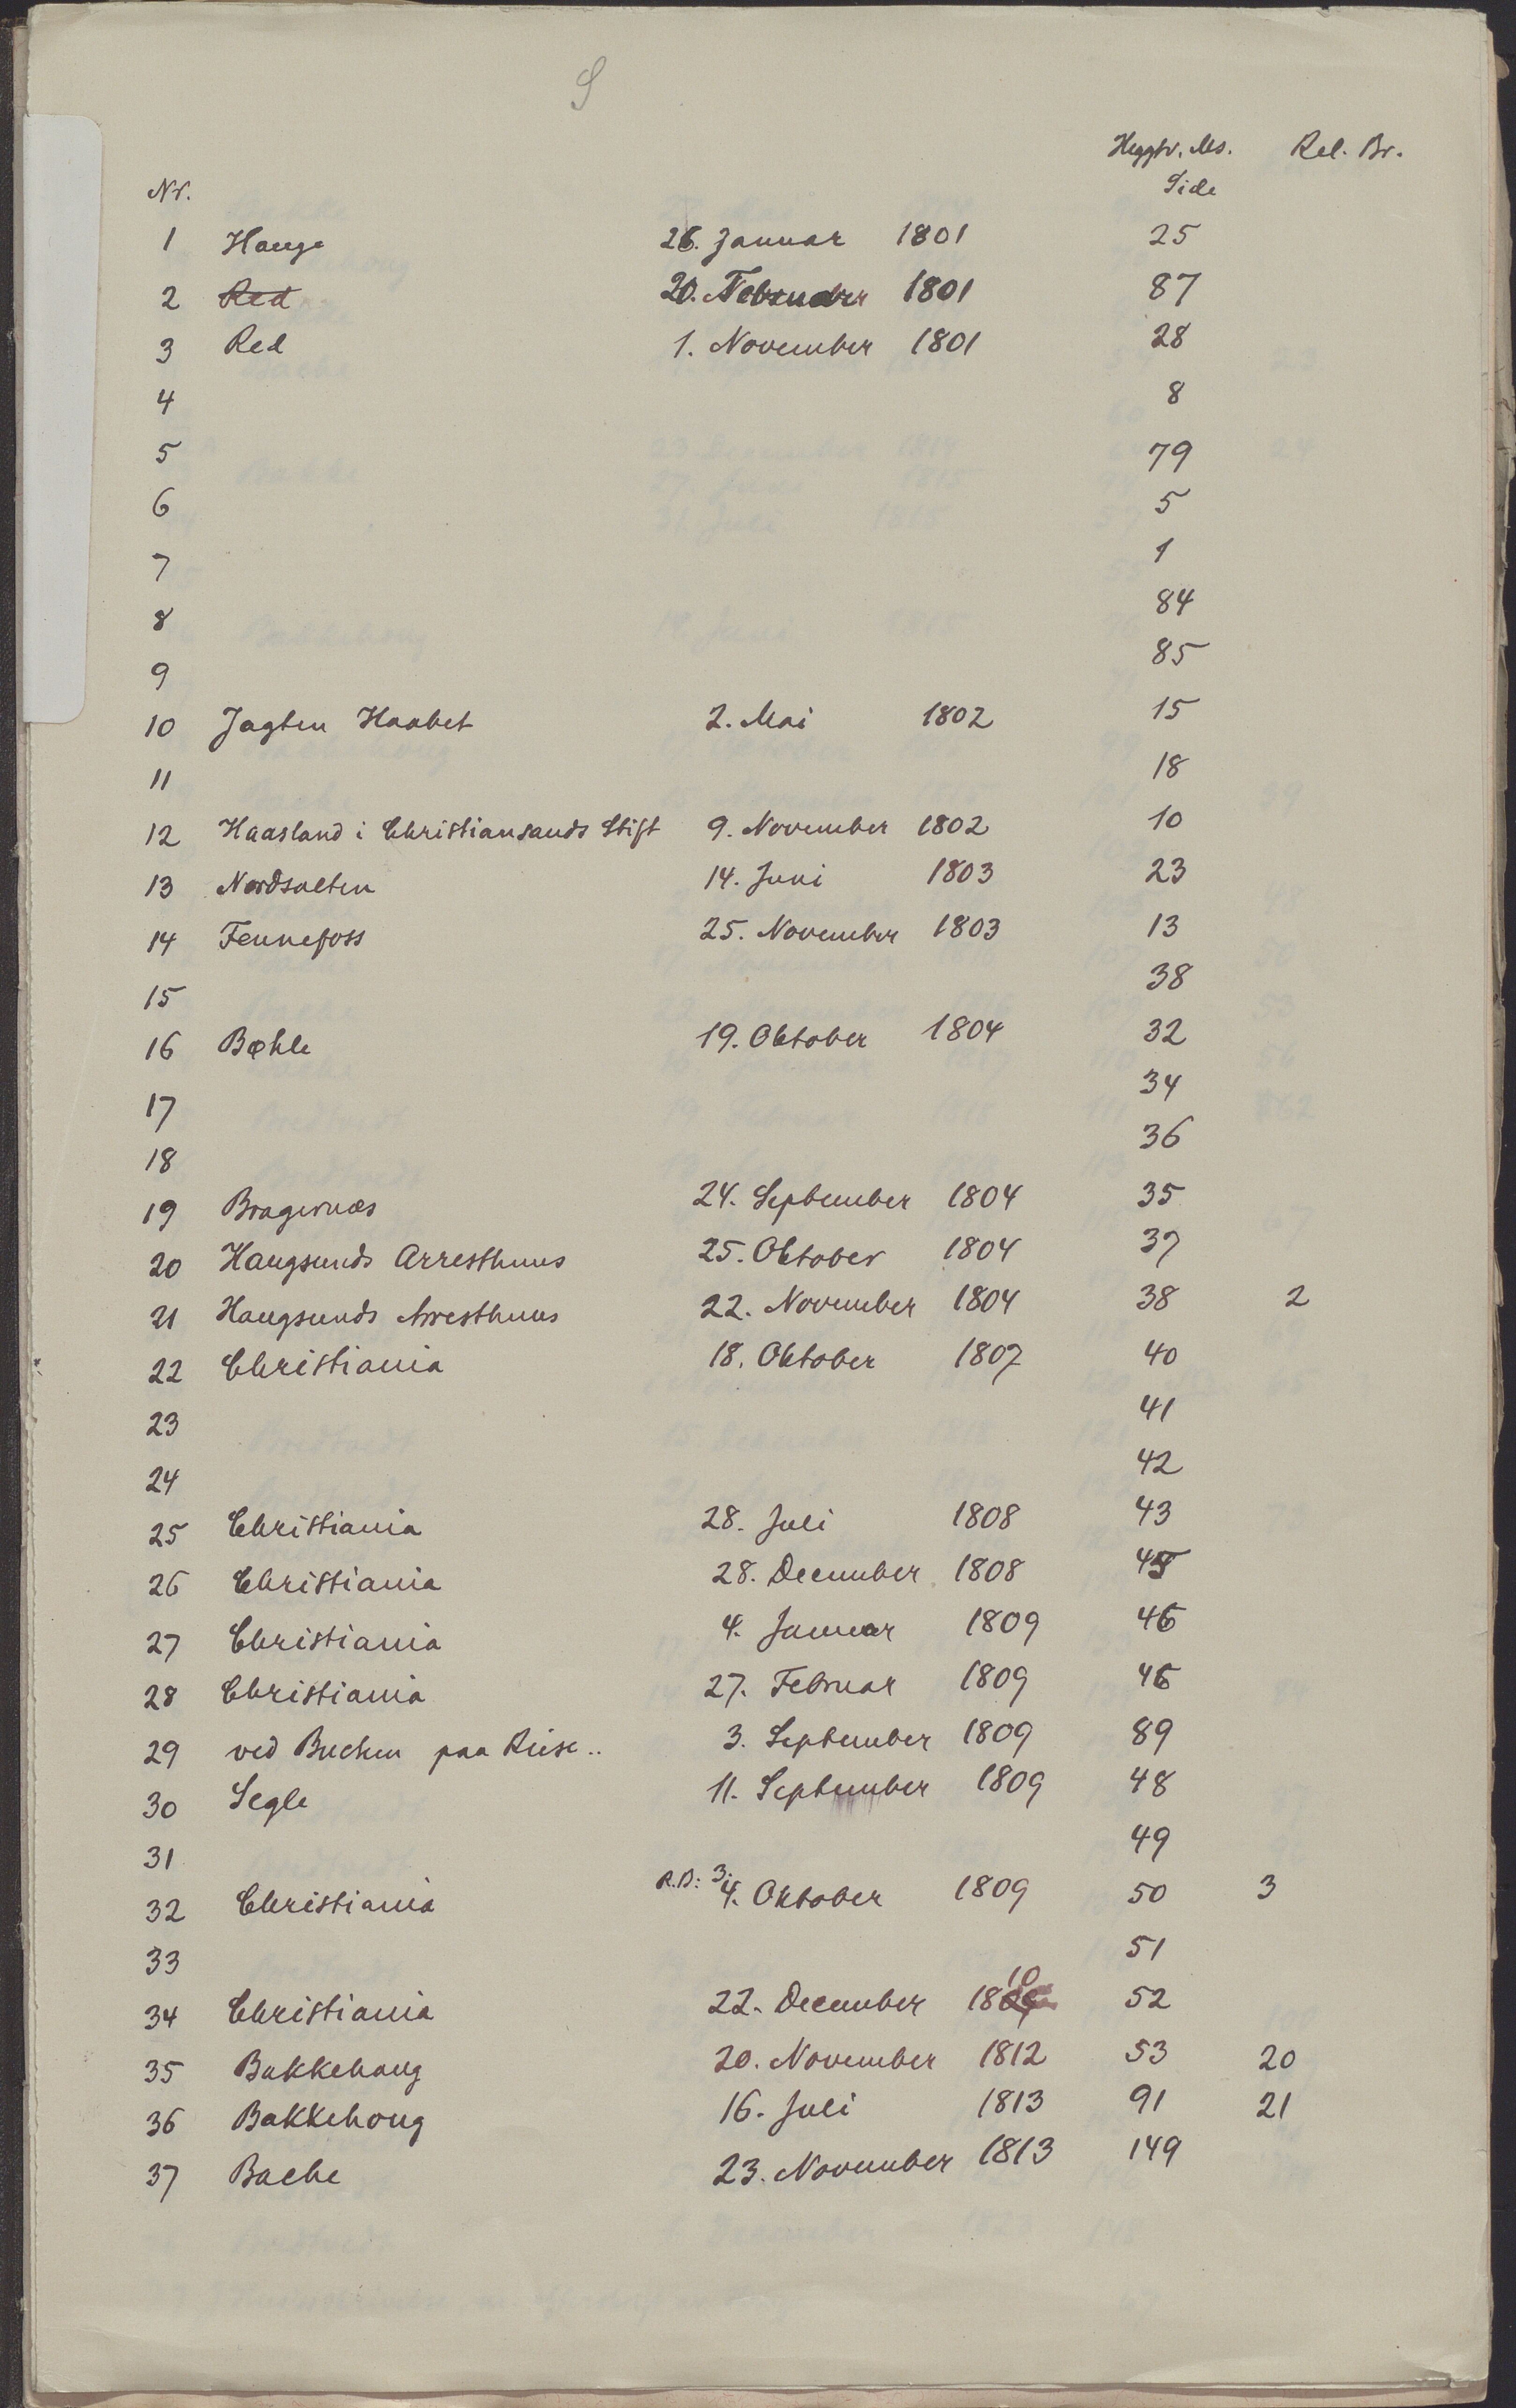 S
Heggtv. Ms. Rel. Br.
Nr. Side
1 Hauge 26. Januar 1801 25
2 Red 20. Februar 1801 87
3 Red 1. November 1801 28
4 8
5 79
6 5
7 1
8 84
9 85
10 Jagten Haabet 2. Mai 1802 15
11 18
12 Haasland i Christiansands Stift 9. November 1802 10
13 Nordsalten 14. Juni 1803 23
14 Fennefoss 25. November 1803 13
15 38
16 Bøhle 19. Oktober 1804 32
17 34
18 36
19 Bragernæs 24. September 1804 35
20 Haugsunds Arresthuus 25. Oktober 1804 37
21 Haugsunds Arresthuus 22. November 1804 38 2
22 Christiania 18. Oktober 1807 40
23 41
24 42
25 Christiania 28. Juli 1808 43
26 Christiania 28. December 1808 45
27 Christiania 4. Januar 1809 46
28 Christiania 27. Februar 1809 46
29 ved Buchen paa Reise.. 3. September 1809 89
30 Segle 11. September 1809 48
31 49
32 Christiania R.B: 3. 4. Oktober 1809 50 3
33 51
34 Christiania 22. December 1810 52
35 Bakkehaug 20. November 1812 53 20
36 Bakkehoug 16. Juli 1813 91 21
37 Bache 23. November 1813 149